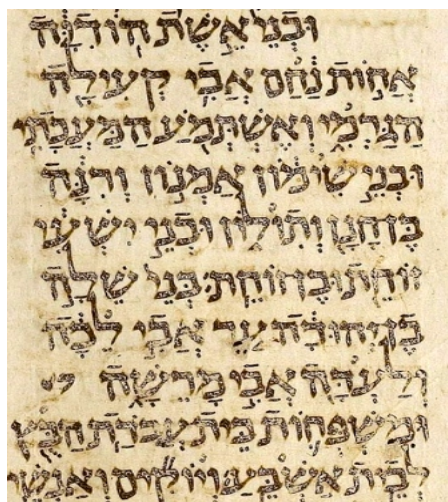 וּבְנֵי אֵשֶׁת הוֹדִיָּה
אֲחוֹת נַחַם אֲבִי קְעִילָה
הַגַּרְמִי וְאֶשְׁתְּמֹעַ הַמַּעֲכָתִי
וּבְנֵי שִׁימוֹן אַמְנוֹן וְרִנָּה
בֶּן חָנָן וְתִולוֹן וּבְנֵי יִשְׁעִי
זוֹחֵת וּבֶן זוֹחֵת׃ בְּנֵי שֵׁלָה
בֶן יְהוּדָה עֵר אֲבִי לֵכָה
וְלַעְדָּה אֲבִי מָרֵשָׁה
וּמִשְׁפְּחוֹת בֵּית עֲבֹדַת הַבֻּץ
לְבֵית אַשְׁבֵּעַ׃ וְיוֹקִים וְאַנְשֵׁי